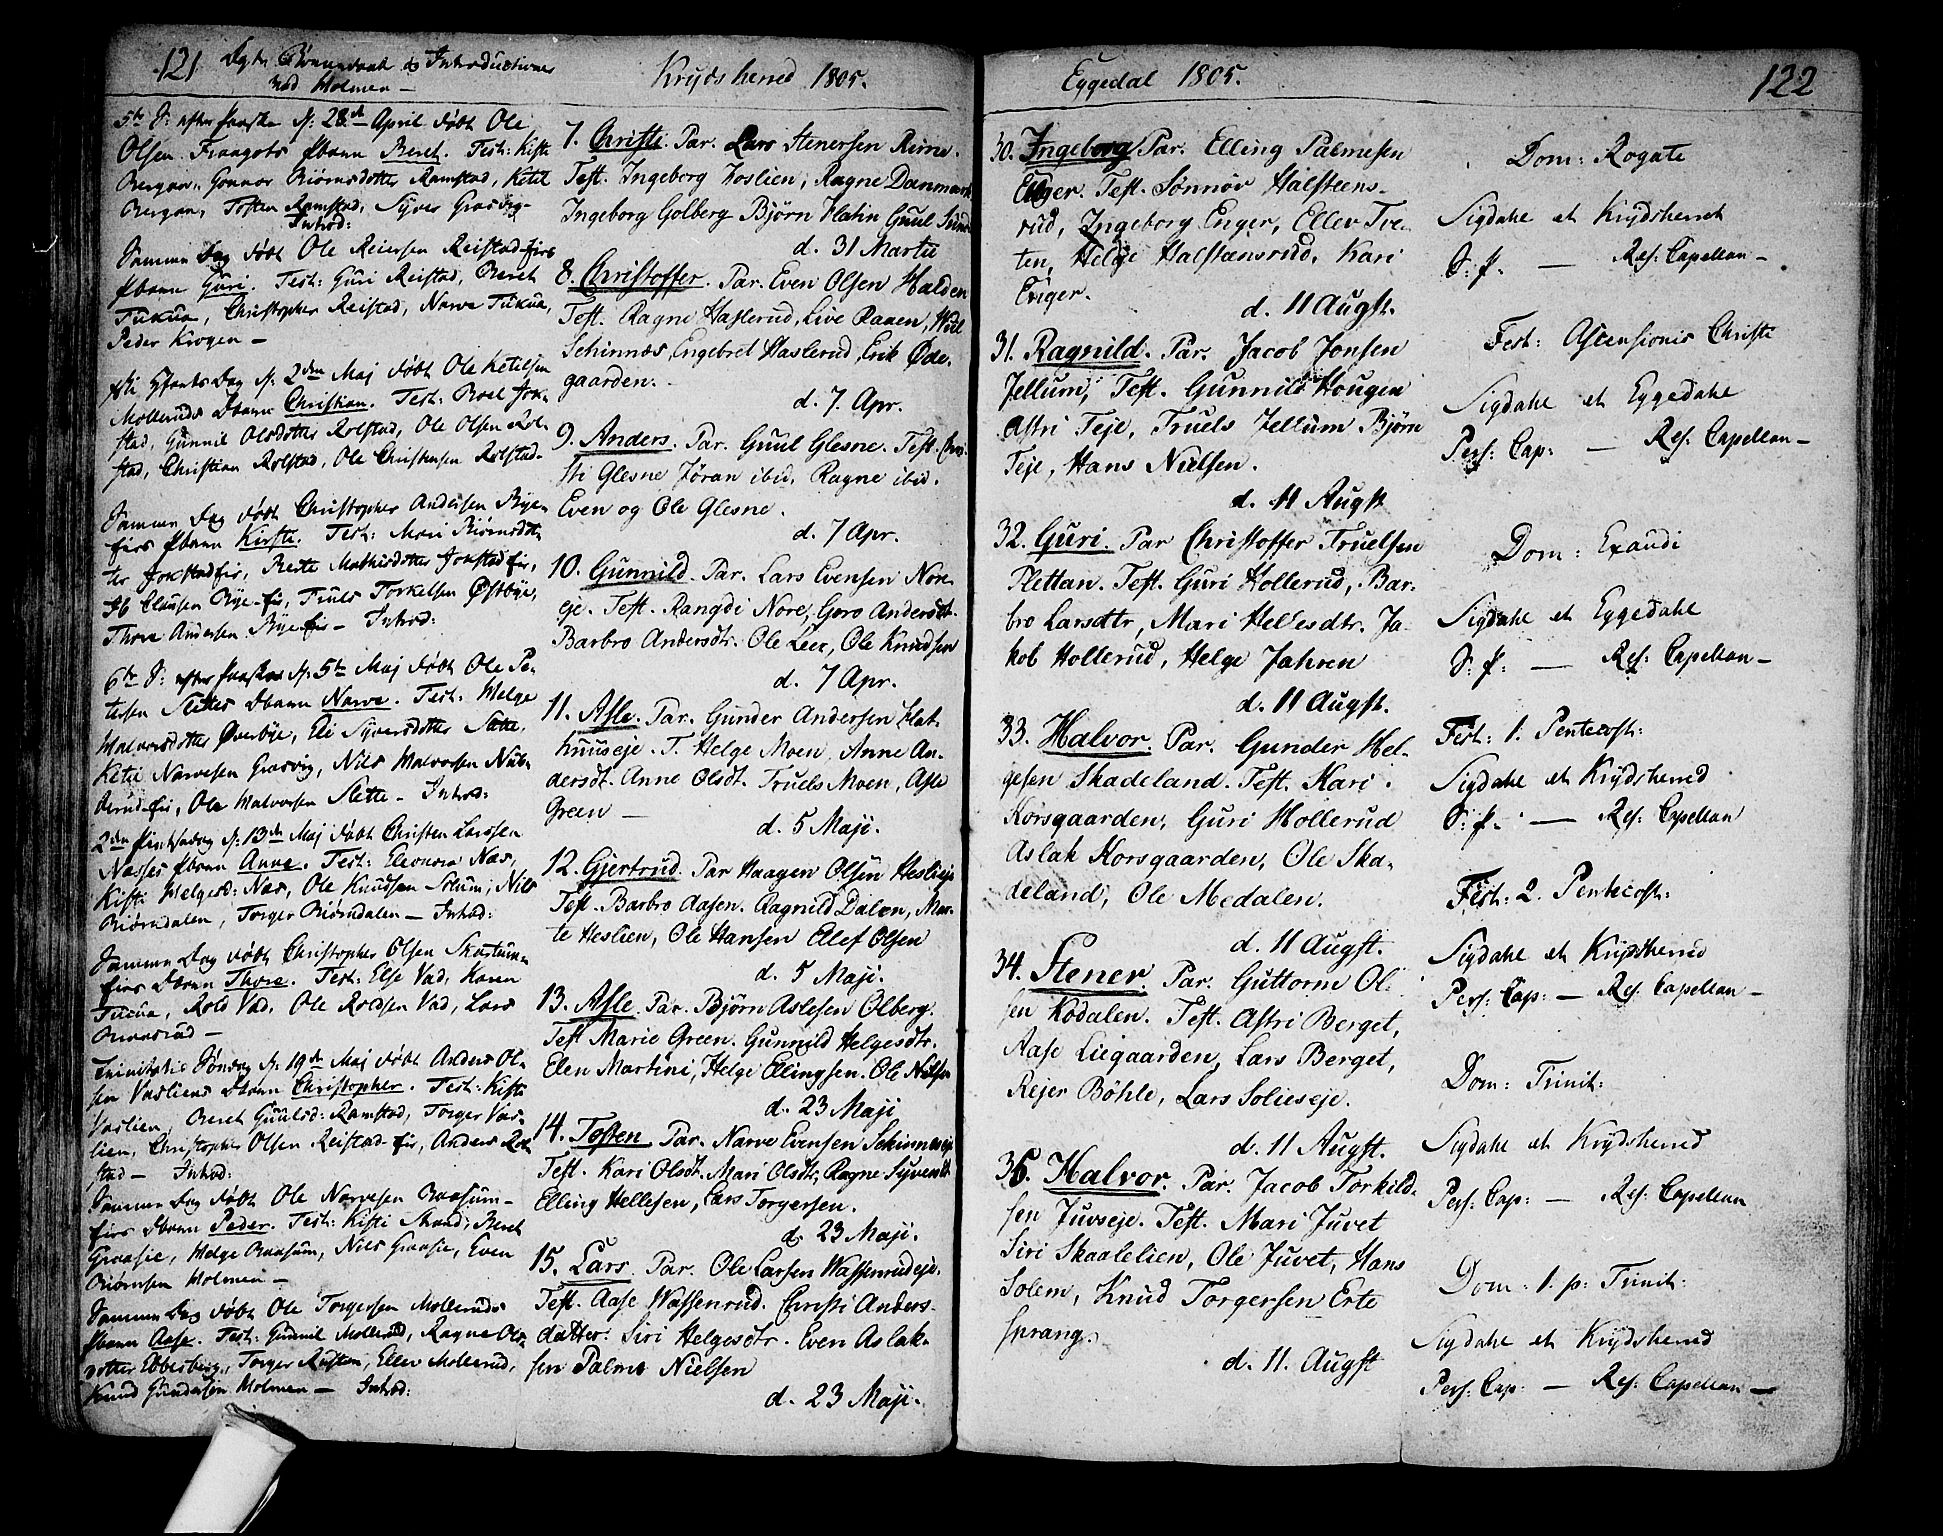 121
Dgtr Børnedaab & Introductioner
ved Holmen –
5te S: efter Paaske d: 28de April døbt Ole
Olsen Frangots Ubarn Beret. Test: Kisti
Bergan, Gonnor Biörnsdotter Ramstad, Ketil
Bergan, Tosten Ramstad, Syver Grasvig –
Introd:
Samme Dag døbt Ole Reiersen Reistad-eies
Ubarn Guri. Test: Guri Reistad, Beret
Tukua, Christopher Reistad, Narve Tukua,
Peder Krogen –
Dag d: 2den Maj døbt Ole Ketilsen
Molleruds Dbarn Christian. Test: Roel Jok-
stad, Gunnil Olsdotter Rolstad, Ole Olsen Rol-
stad, Christian Rolstad, Ole Christensen Rolstad –
Samme Dag døbt Christopher Andersen Bye-
eies Ubarn Kirsti. Test: Mari Biörnsdot-
ter Jokstad eie, Berte Mathisdotter Jokstad eie,
Ib Clausen Bye-eie, Truls Torkelsen Østbye,
Thore Andersen Bye eie – Introd:
6te S: efter Paaske d: 5te Maj døbt Ole Pe-
tersen Slettes Dbarn Narve. Test: Helge
Halvorsdotter Øverbye, Eli Syversdotter Slette,
Ketil Narvesen Grasvig, Nils Halvorsen Nub-
berud-eie, Ole Halvorsen Slette – Introd:
2den Pintsedag d: 13de Maj døbt Christen Larssen
Næsses Ubarn Anne. Test: Eleonora Næs,
Kisti Helgesd: Næs, Ole Knudsen Solum, Nils
Biörndalen, Torger Biörndalen – Introd:
Samme Dag døbt Christopher Olsen Skartum-
eies Dbarn Thore. Test: Else Vad, Karen
Tukua, Rold Vad, Ole Roldsen Vad, Lars
Trinitatis Söndag d: 19de Maj døbt Anders Ol-
sen Vasliens Dbarn Christopher. Test: Kisti
Vaslien, Beret Guulsd: Ramstad, Torger Vas-
lien, Christopher Olsen Reistad-eie, Anders Rol-
stad – Introd:
Samme Dag døbt Ole Narvesen Raasum-
eies Dbarn Peder. Test: Kisti Strand, Beret
Graasie, Helge Raasum, Nils Graasie, Even
Biörnsen Holmen –
Samme Dag døbt Ole Torgersen Molleruds
Ubarn Aase. Test: Gunnil Mollerud, Ragne Ols-
dotter Ebbesberg, Torger Rusten, Ellev Mollerud,
Knud Gundersen Holmen – Introd:
Krydsherred 1805.
7. Christi. Par. Lars Stenersen Rime.
Test. Ingeborg Loslien, Ragne Danmark
Ingeborg Golberg Bjørn Flatin Guul Sund
d. 31 Martii
8. Christoffer. Par. Even Olsen Halden
Test. Ragne Haslerud, Live Raaen,
Schinnæs, Engebret Haslerud, Erik Øde-
gaarden.
d. 7. Apr.
9. Anders. Par. Guul Glesne. Test. Chri-
sti Glesne Jøran ibid, Ragne ibid.
Even og Ole Glesne.
d. 7 Apr.
10. Gunnild. Par. Lars Evensen Nor-
eje. Test. Rangdi Nore, Goro Andersdt.
Barbro Andersdtr. Ole Leer, Ole Knudsen
d. 7 Apr.
11. Asle. Par. Gunder Andersen Flat-
huuseje. T. Helge Moen, Anne An-
dersdt. Anne Olsdt. Truels Moen, Asle
Green –
d. 5 Maji.
12. Gjertrud. Par Haagen Olsen Heslieeje
Test. Barbro Aasen. Ragnild Dalen, Mar-
te Heslien, Ole Hansen Elef Olsen
d. 5 Maji.
13. Asle. Par. Bjørn Aslesen Olberg.
Test Marie Green. Gunnild Helgesdtr.
Elen Martini, Helge Ellingsen. Ole Nilsen
d. 23 Maji
14. Tosten Par. Narve Evensen Schinnæseje
Test. Kari Olsdt. Mari Olsdtr, Ragne Syversdt
Elling Hellesen, Lars Torgersen.
d. 23 Maji.
15. Lars. Par. Ole Larsen Wassenrudeje.
Test. Aase Wassenrud. Christi Anders-
datter. Siri Helgesdtr. Even Aslak-
sen Palme Nielsen
d. 23 Maji.
Eggedal 1805.
122
30. Ingeborg Par. Elling Palmesen
Enger. Test. Sønnøv Halsteens-
rud, Ingeborg Enger, Ellev Tve-
ten, Helge Halstænsrud, Kari
Enger.
d. 11 Augst.
31. Ragnild. Par. Jacob Jonsen
Jellum, Test. Gunnild Hougen
Astri Teje, Truels Jellum Bjørn
Teje, Hans Nielsen.
d. 11 Augst
32. Guri. Par Christoffer Truelsen
Plettan. Test. Guri Hollerud, Bar-
bro Larsdtr, Mari Hellesdtr. Ja-
kob Hollerud, Helge Jahren
d. 11 Augst.
33. Halvor. Par. Gunder Hel-
gesen Skadeland. Test. Kari
Korsgaarden, Guri Hollerud
Aslak Korsgaarden, Ole Ska-
deland, Ole Medalen.
d. 11 Augst.
34. Stener. Par. Guttorm Ol-
sen Kodalen. Test. Astri Berget,
Aase Liegaarden, Lars Berget,
Rejer Bøhle, Lars Solieseje.
d. 11 Augst.
35. Halvor. Par. Jacob Torkild-
sen Juvseje. Test. Mari Juvet
Siri Skaalelien, Ole Juvet, Hans
Solem, Knud Torgersen Erte-
sprang.
d. 11. Augst
Dom: Rogate
Sigdahl et Krydsherret
S: P. — Res: Capellan –
Fest: Ascensionis Christi
Sigdahl et Eggedahl
Pers: Cap: — Res. Capellan –
Dom: Exaudi
Sigdahl et Eggedahl
S: P. — Res: Capellan –
Fest: 1. Pentecost:
Sigdahl et Krydsherred
S: P. — Res: Capellan
Fest: 2. Pentecost:
Sigdahl et Krydsherred
Pers: Cap: — Res. Capellan –
Dom: Trinit:
Sigdahl et Krydsherred
Pers: Cap: — Res: Capellan
Dom: 1. p: Trinit:
Sigdahl et Krydsherred
Pers: Cap: — Res: Capellan –